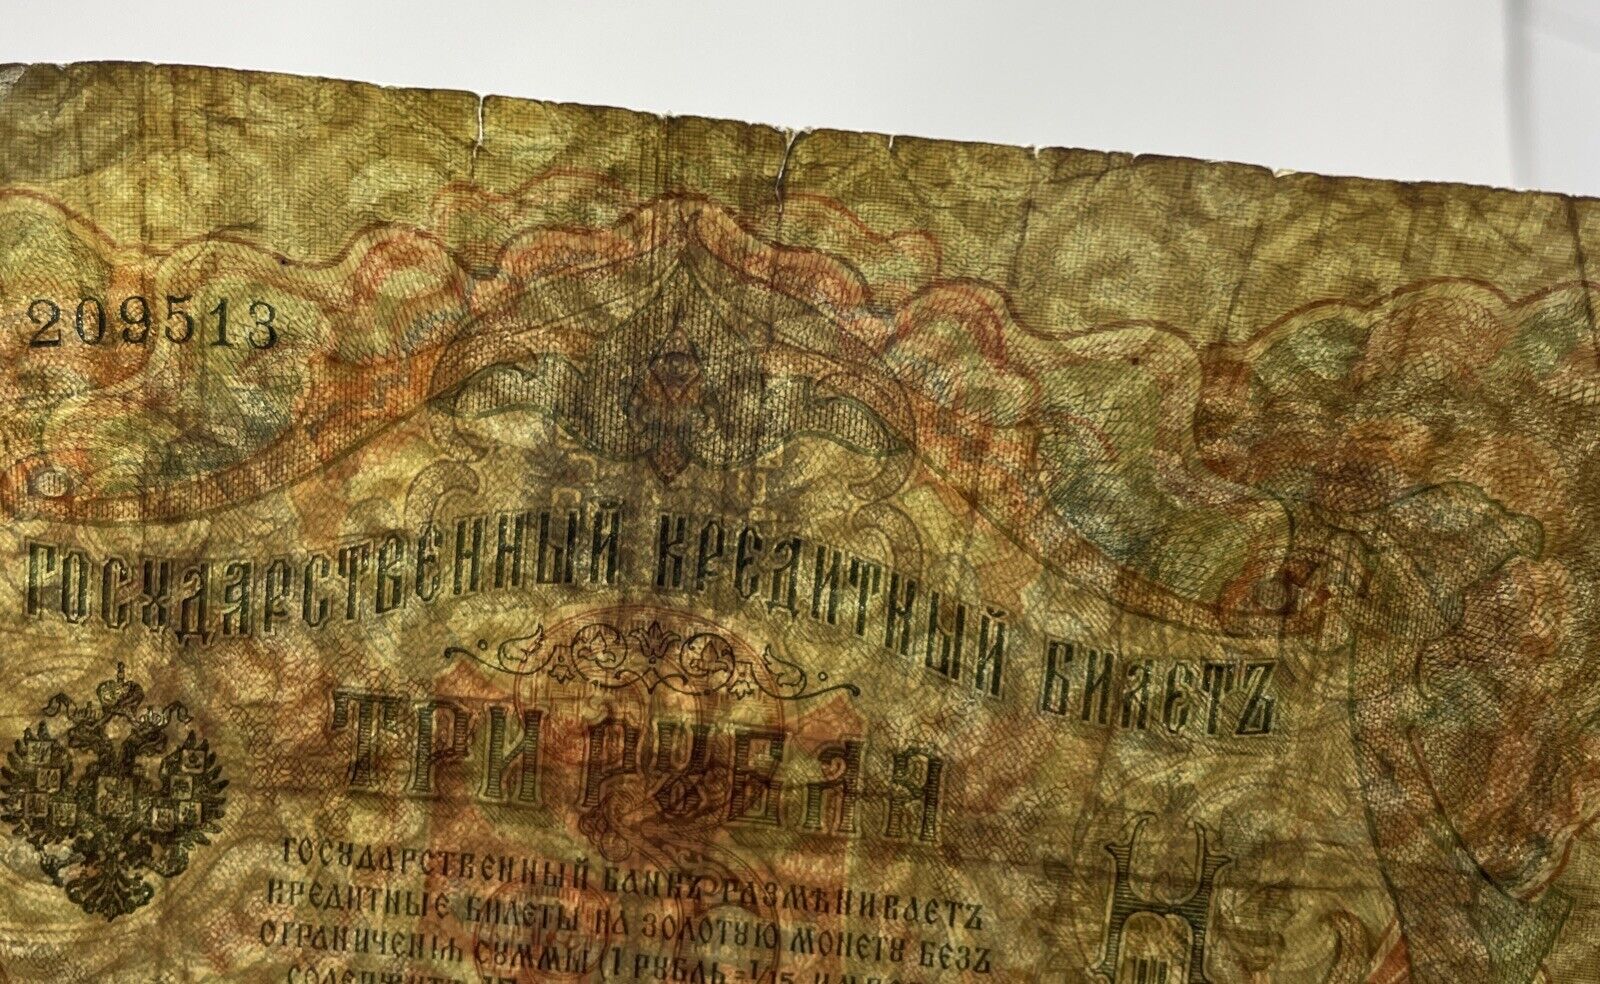 209513
ГОСУДАРСТВЕННЫЙ КРЕДИТНЫЙ БИЛЕТЪ
ТРИ РУБЛЯ
ГОСУДАРСТВЕННЫЙ БАНКЪ РАЗМѢНИВАЕТЪ
КРЕДИТНЫЕ БИЛЕТЫ НА ЗОЛОТУЮ МОНЕТУ БЕЗЪ
ОГРАНИЧЕНІЯ СУММЫ (1 РУБЛЬ = 1/15
Н